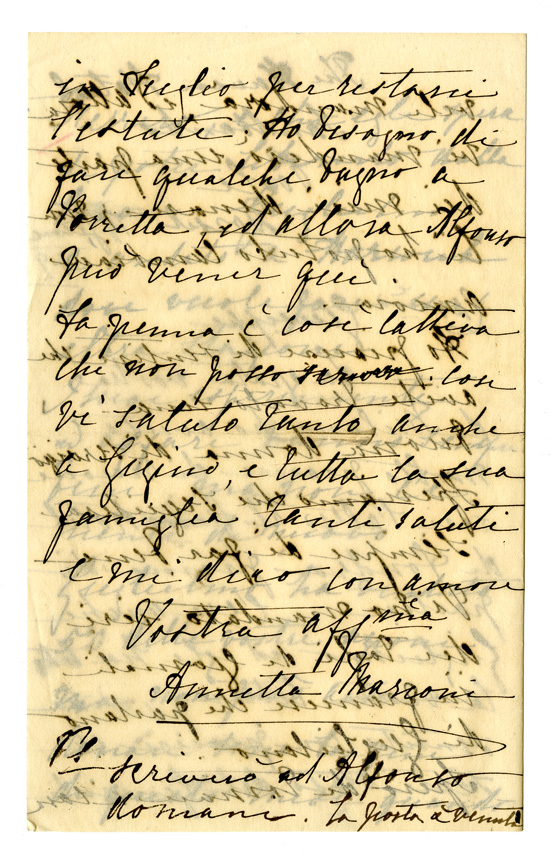 in Luglio per restarvi
l'estate. Ho bisogno di
fare qualche bagno a
Porretta, ed allora Alfonso
può venir qui.
La penna è così cattiva
che non posso scrivere, così
vi saluto tanto, anche
a Gigino, e tutta la sua
famiglia tanti saluti
e mi dico con amore
Vostra affma
Annetta Marconi
PS
scriverò ad Alfonso
domani. La posta è venuta